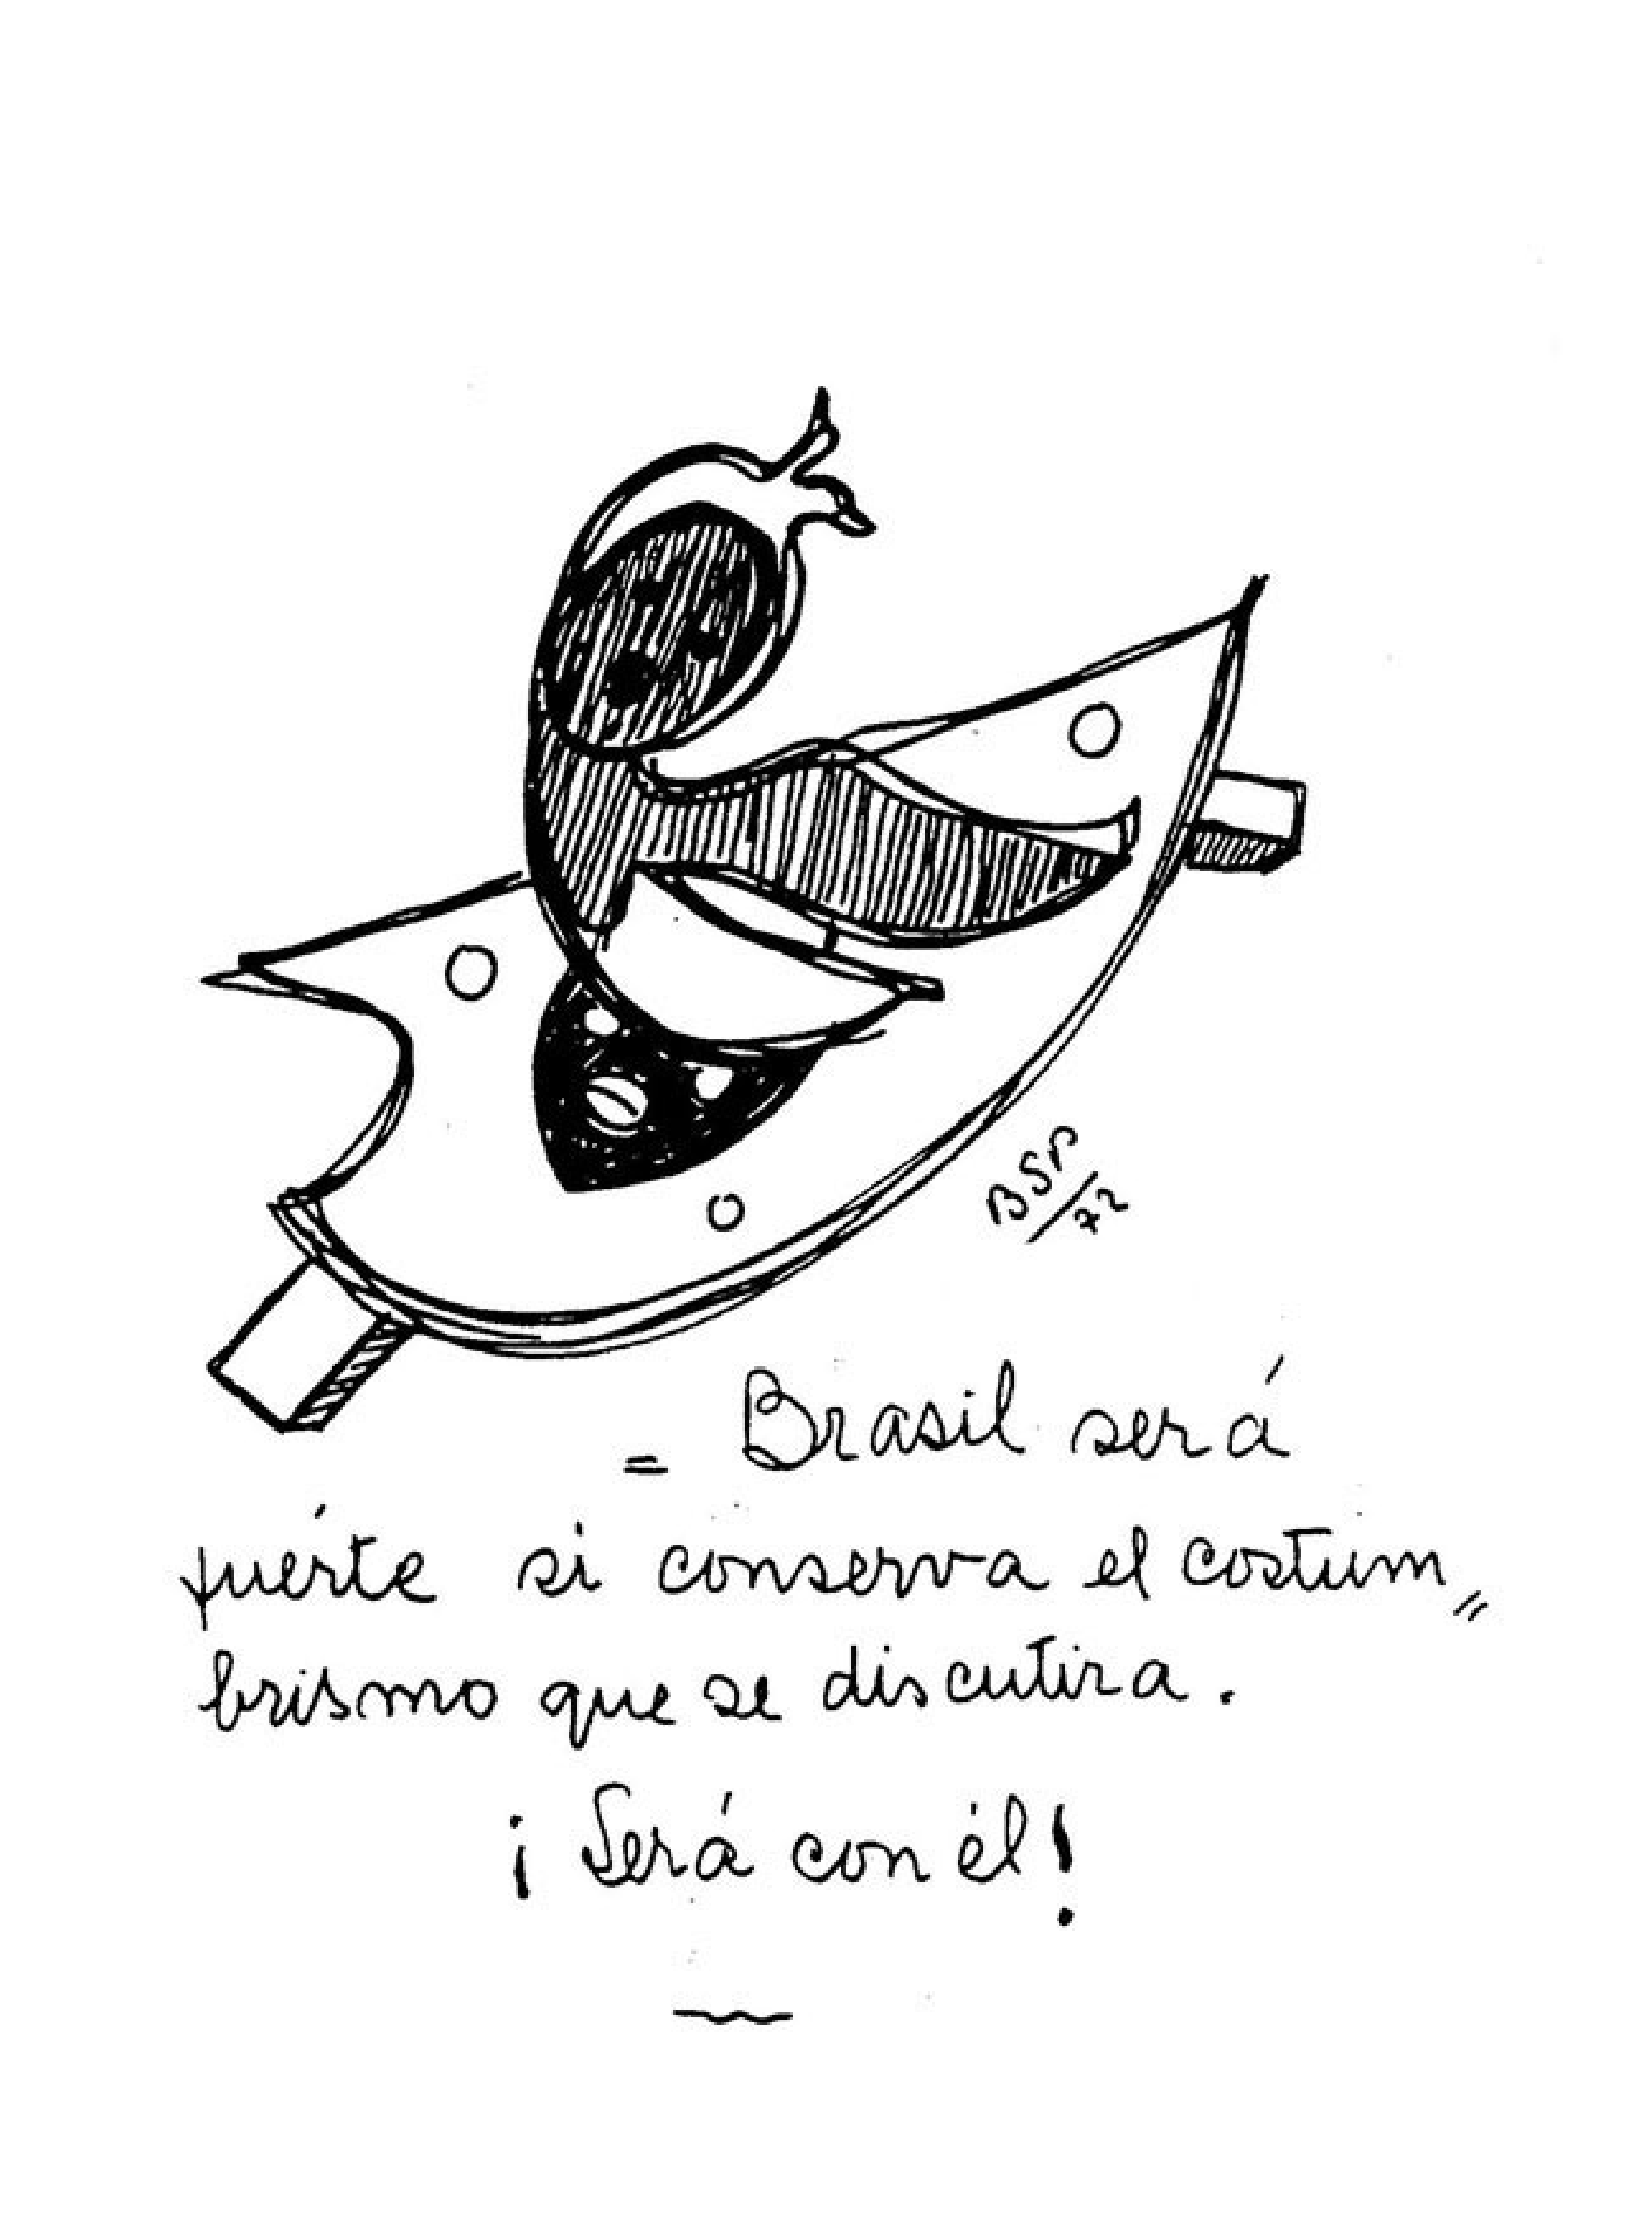 BSP
/72
= Brasil será
fuérte si conserva el costum=
brismo que se discutira.
¡Será con él!